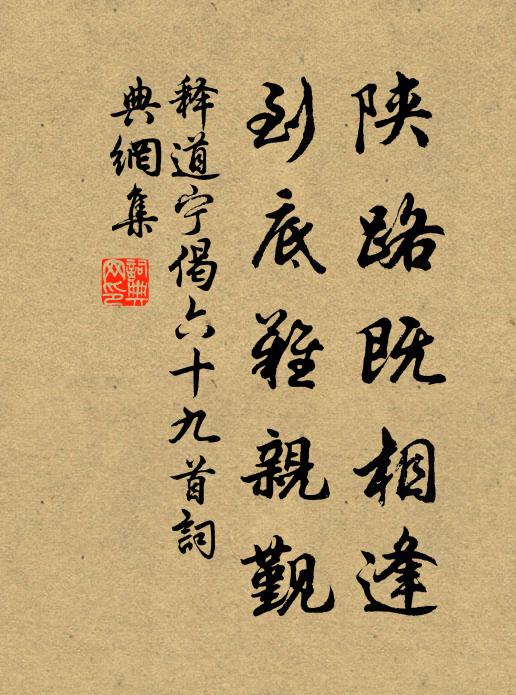 陕路既相逢
到底难親觐
释道宁偈六十九首詞
典網集
詞典网印